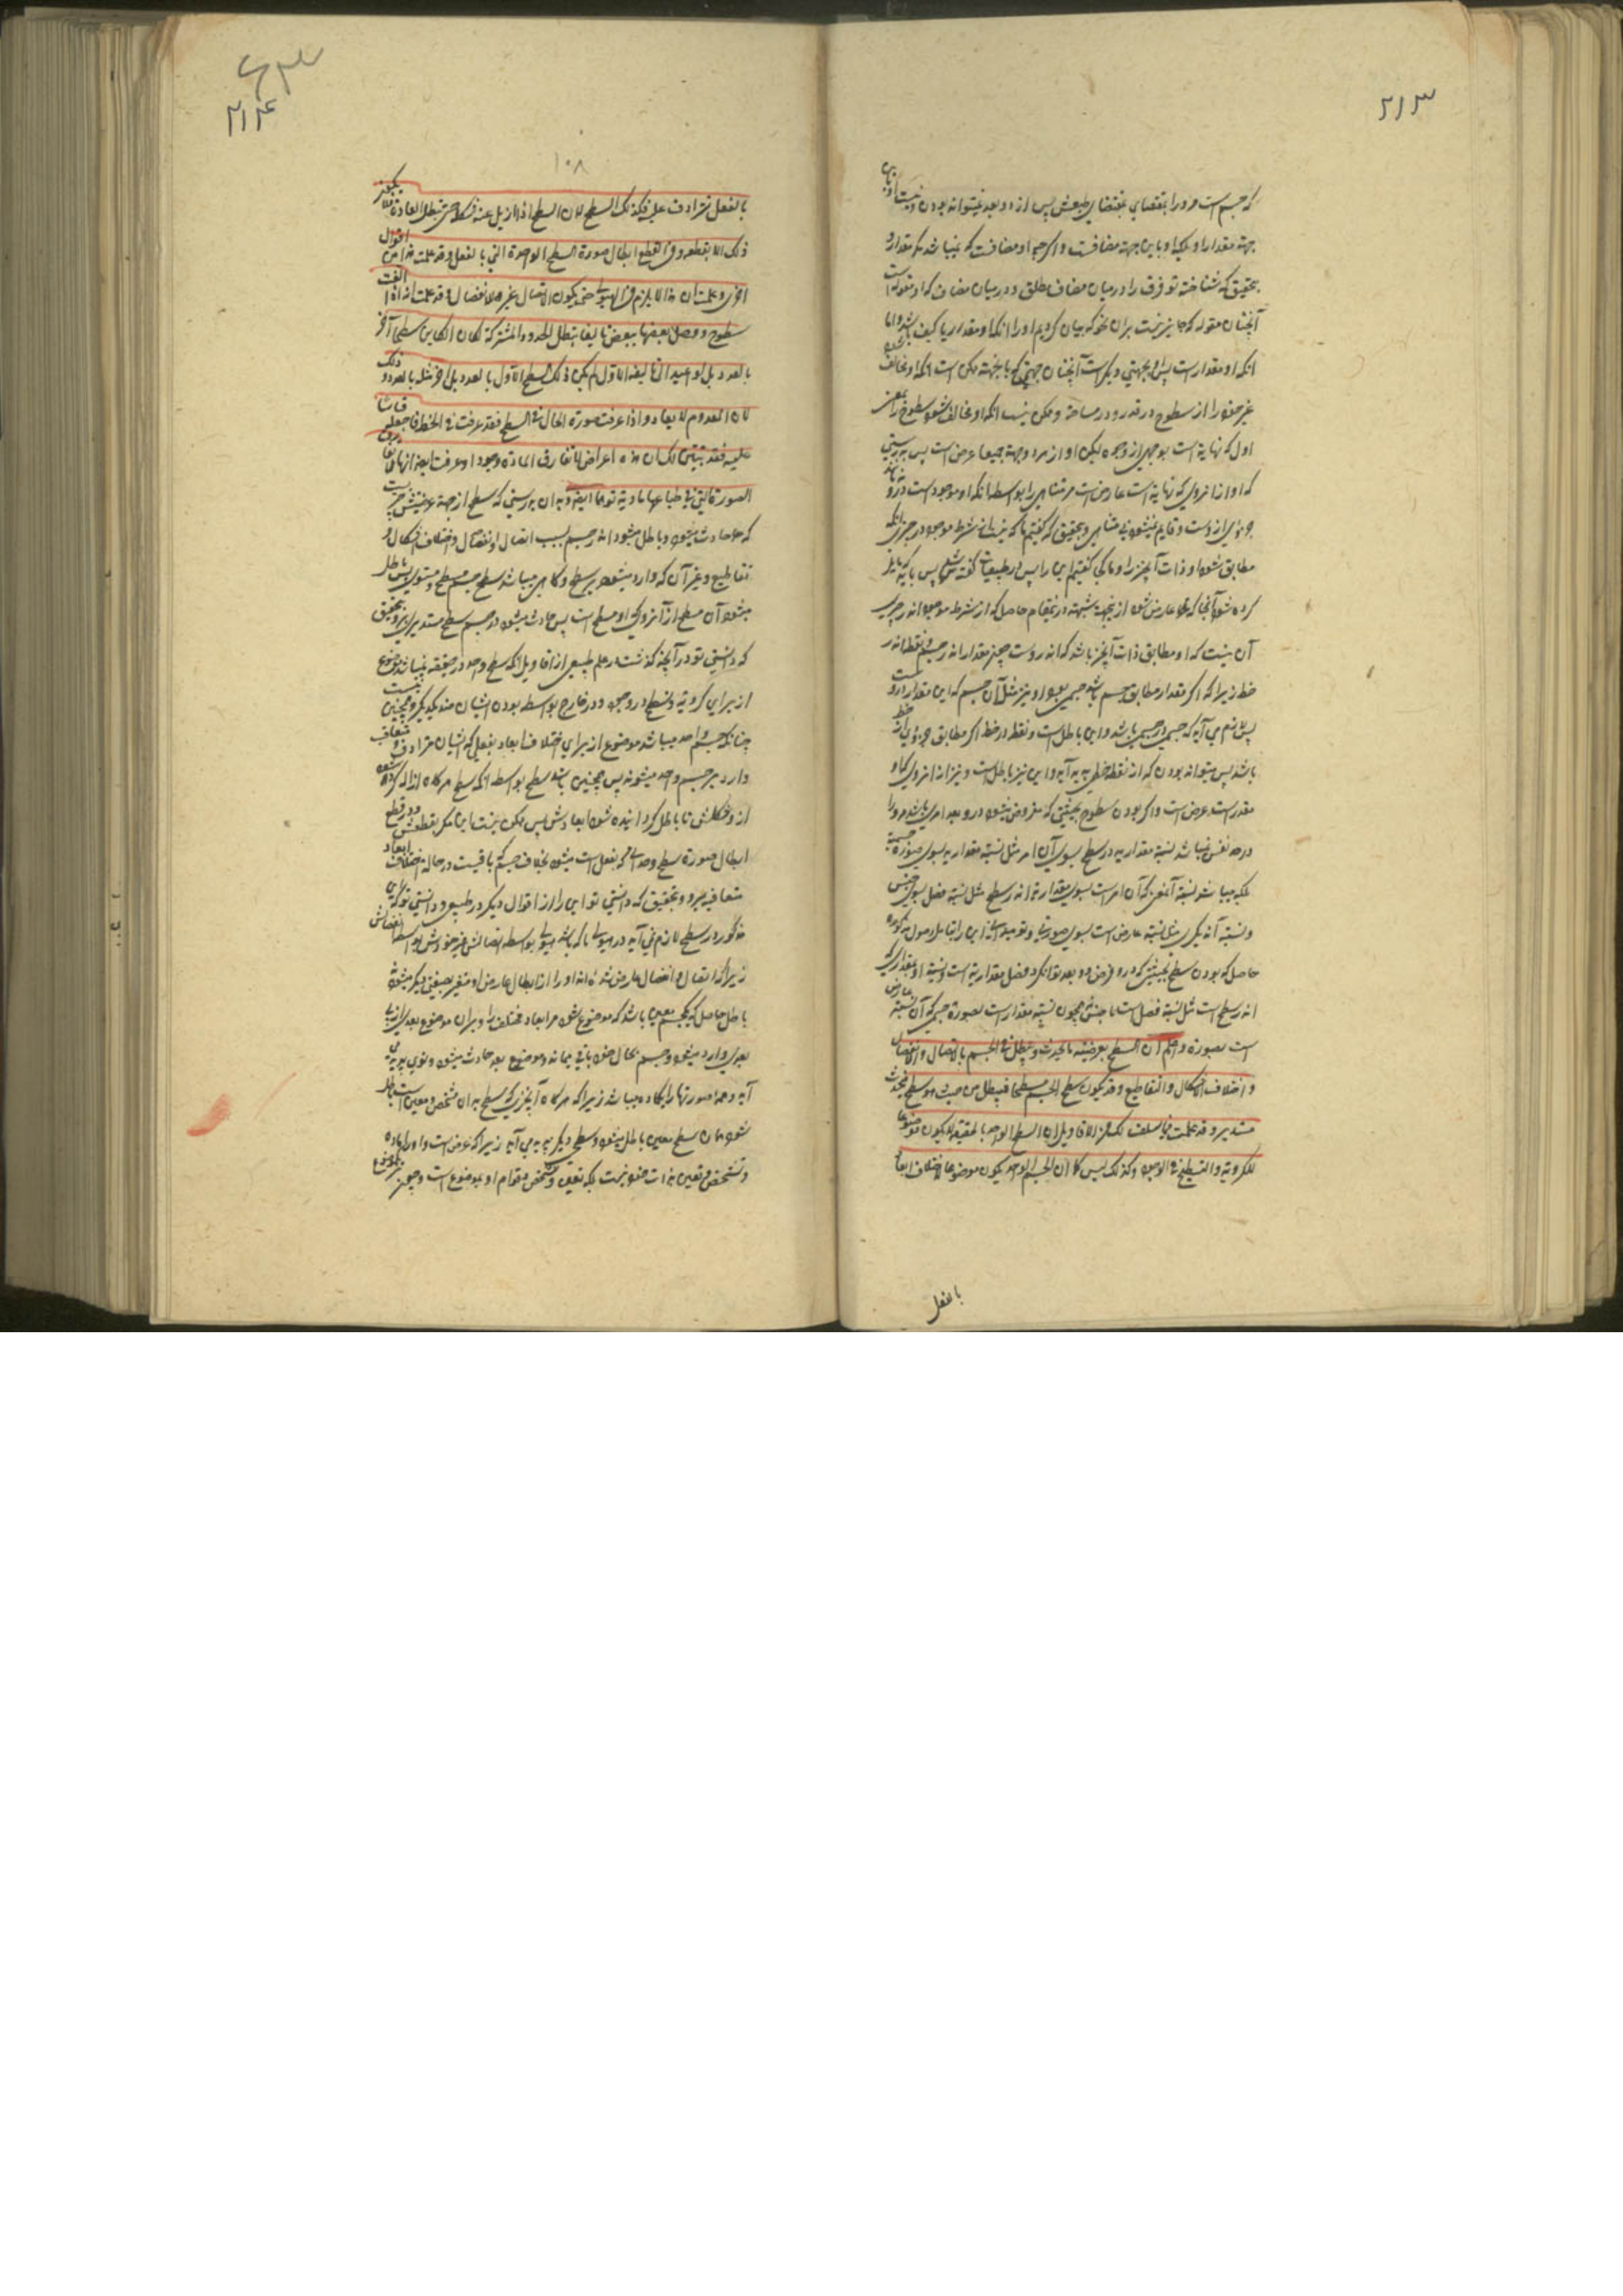 ۲۱۳
که جسم است مر و را بمقتضای طبعش پس از دو بعد نمیتواند بودن
جهة مقدار او بلکه او باین جهة مضافست و اگر چه او مضافست که نمیباشد مگر مقدار و
بتحقیق که شناخته تو فرق را درمیان مضاف مطلق و درمیان مضاف که او مقوله است
آنچنان مقوله که جایز نیست بران نحو که بیان کردیم او را انکه او مقدار یا کیف باشد و اما
انکه او مقدار است پس او بجهتی دیگر است آنچنان جهتی که باینجهة ممکن است انکه او مخالف
غیر خود را از سطوح در قدر و در مساحة و ممکن نیست انکه او مخالف شود سطوح را بمعنی
اول که نهایة است بوجهی از وجوه لیکن او از هر دو جهة جمیعا عرض است پس بدرستی
که او از انروی که نهایة است عارض است مر متناهی را بواسطه انکه او موجود است درو
جزوی از وست و قایم نمیشود بی متناهی و بتحقیق که گفتیم ما که نیست از شرط موجود در چیزی انکه
مطابق شود او ذات آنچیز را و ما گفتیم این را پس در طبیعیات
کرده شود آنجا که عارض شود از جهة شبهة درینمقام حاصل که از شرط موجود اندر چیزی
آن نیست که او مطابق ذات آنچیز باشد که اندر وست چیز مقدار اندر جسم و نقطه اندر
خط زیرا که اگر مقدار مطابق جسم باشد جسمی بود او نیز مثل آن جسم که این مقدار دارد
پس لازم می آید که جسمی در جسمی باشد و این باطل است و نقطه در خط اگر مطابق جزوی از خط
باشد پس میتواند بودن که از نقطه خطی پدید آید و این نیز باطل است و نیز از انروی که او
مقدر است عرض است و اگر بودن سطوح بحیثیتی که مفروض میشود درو بعد امری باشد مر و را
در حد نفس نمیباشد نسبة مقداریه در سطح بسوی آن امر مثل نسبة مقداریه بسوی صورة جسمیة
بلکه میباشد نسبة آنمعنی که آن امر است بسوی مقداریة اندر سطح مثل نسبة فصل بسوی جنس
و نسبة آن دیگری مثل نسبة عارض است بسوی صورة و تو میدانی این را بتامل اصول مذکوره
حاصل که بودن سطح بحیثیتی که درو فرض دو بعد توان کرد فصل مقداریة است و نسبة او بمقداریکه
اندر سطح است مثل نسبة فصل است با جنس همچون نسبة مقدار است بصورة جسمی که آن نسبة عارض
است بصورة و اعلم ان السطح بعرضیته مایحدث و یبطل فی الجسم بالاتصال و الانفصال
و اختلاف الاشکال و التقاطیع و قد یکون سطح الجسم مسطحا فیبطل من حیث هو مسطح فیحدث
مستدیر و قد علمت فیما سلف لک من الاقاویل ان السطح الواحد بالحقیقة لا یکون موضوعا
للکرویة و التسطیح فی الوجود و کذلک لیس کما ان الجسم الواحد یکون موضوعا لاختلاف ابعاد
بالفعل
۲۱۴
۱۰۸
بالفعل تترادف علیه فکذلک السطح لان السطح اذا ازیل عنه شکله حتی تبطل ابعاده فلا یمکن
ذلک الا بقطعه و فی القطع ابطال صورة السطح الواحدة التی بالفعل و قد علمت هذا من اقوال
اخری و علمت ان هذا لا یلزم فی الهیولی حتی یکون الاتصال غیر هیولی الانفصال و قد علمت انه اذا الفت
سطوح و وصل بعضها ببعض تالیفا تبطل الحدود المشترکة لکان الکاین سطحا آخر
بالعدد بل لو اعید الی تالیفه الاول لم یکن ذلک السطح الاول بالعدد بل آخر مثله بالعدد و ذلک
لان المعدوم لا یعاد و اذا عرفت صورة الحال فی السطح فقد عرفت فی الخط فاجعله قیاسا
علیه فقد تبین لک ان هذه اعراض لا تفارق المادة وجودا و عرفت ایضا انها لا تفارق
الصورة التی فی طباعها مادیة توهما ایضا و بدان بدرستی که سطح از جهة عرضیتش چیزیست
که حادث میشود و باطل میشود اندر جسم بسبب اتصال و انفصال و اختلاف اشکال و
تقاطیع و غیر آن که وارد میشود بر سطح و گاهی میباشد سطح جسم مسطح و مستوی پس باطل
میشود آن مسطح از آنروی که او مسطح است پس حادث میشود در جسم سطح مستدیری و بتحقیق
که دانستی تو در آنچه گذشت در علم طبیعی از اقاویل انکه سطح واحد در حقیقة نمیباشد موضوع
از برای کرویة و تسطیح در وجود و در خارج بواسطه بودن ایشان ضد یکدیگر و همچنین نیست
چنانکه جسم واحد میباشد موضوع از برای اختلاف ابعاد بفعلی که ایشان مترادف و متعاقب
وارد بر جسم واحد میشوند پس همچنین باشد سطح بواسطه انکه سطح هرگاه ازاله کرده شود
ازو شکلش تا باطل گردانیده شود ابعادش پس ممکن نیست این مگر بقطعش و در قطع
ابطال صورة سطح وحدانی که بفعل است میشود بخلاف جسم که باقیست در حالة اختلاف ابعاد
متعاقبه برو و بتحقیق که دانستی تو این را از اقوال دیگر در طبیعی و دانستی تو که این
مذکور در سطح لازم نمی آید در هیولی تا که باشد هیولی بواسطه اتصالش غیر خودش بواسطه انفصالش
زیرا که اتصال و انفصال عارض شده اند او را از ابطال عارض او متغیر بصفتی دیگر میشود
باطل حاصل که یکجسم معین باشد که موضوع شود مر ابعاد مختلفه را و بر آن موضوع بعدی از پی
بعدی وارد میشود و جسم بحال خود باقی بماند و موضوع بعد حادث میشود و نوی پدید می
آید و همه صورتها را نگاه میباشد زیرا که هرگاه آنچیزیکه سطح بدان مشخص و معین است باطل
شود همان سطح معین باطل میشود و سطح دیگر پدید می آید زیرا که عرض است و او را ماده
و تشخص و تعین بذات خود نیست بلکه تعین و تشخص و قوام او بموضوع است و چون موضوع